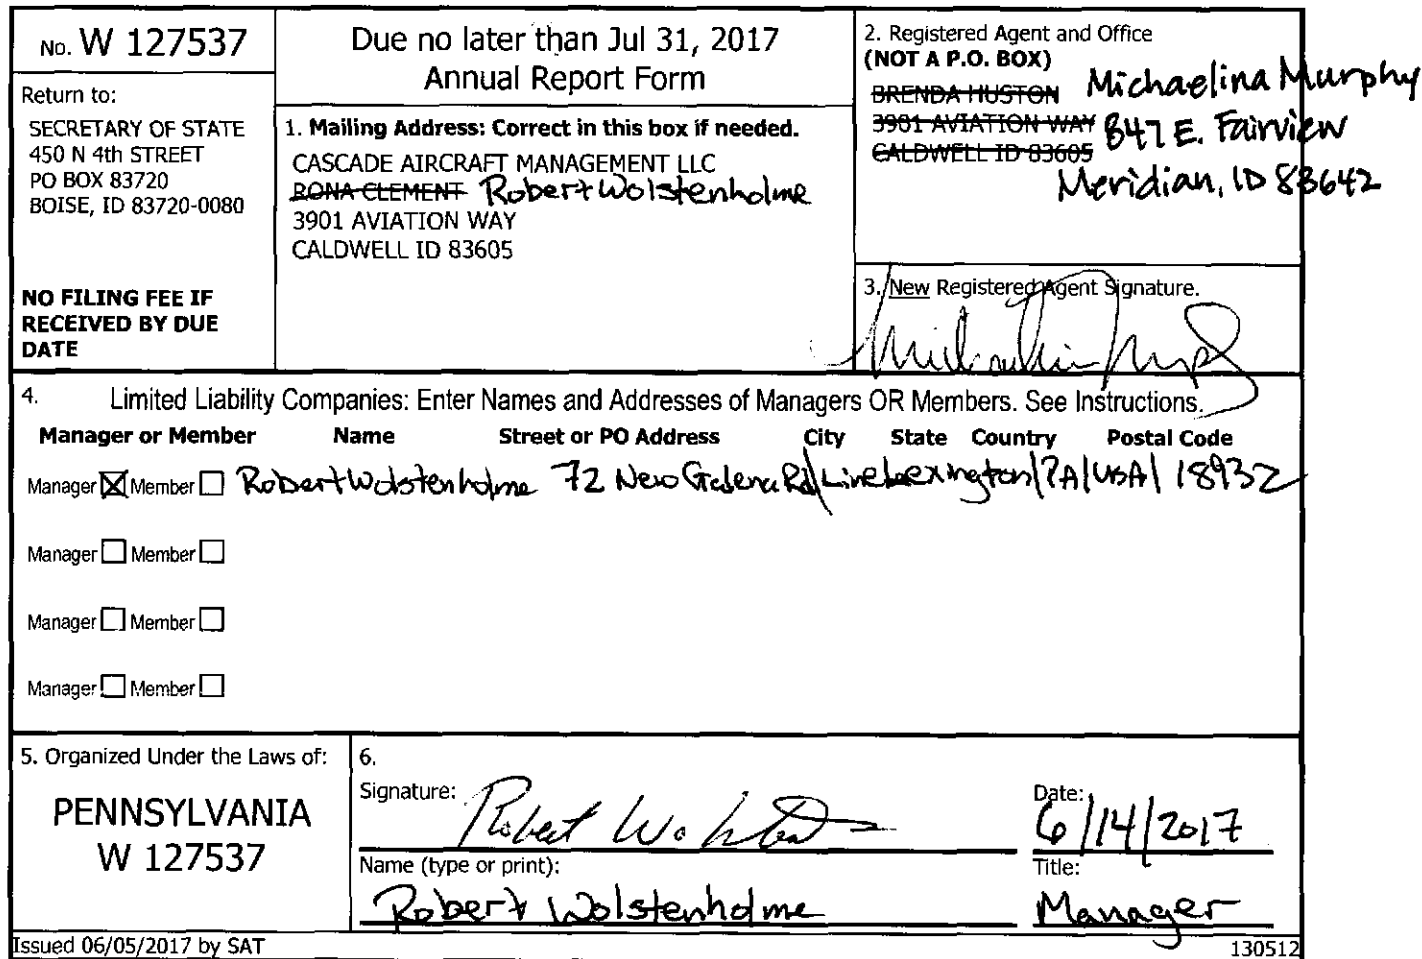 No. W 127537
Return to:
SECRETARY OF STATE
450 N 4th STREET
PO BOX 83720
BOISE, ID 83720-0080
NO FILING FEE IF
RECEIVED BY DUE
DATE
Due no later than Jul 31, 2017
Annual Report Form
1. Mailing Address: Correct in this box if needed.
CASCADE AIRCRAFT MANAGEMENT LLC
RONA CLEMENT Robert Wolstenholme
3901 AVIATION WAY
CALDWELL ID 83605
2. Registered Agent and Office
(NOT A P.O. BOX)
BRENDA HUSTON Michaelina Murphy
3901 AVIATION WAY 847 E. Fairview
CALDWELL ID 83605
Meridian, ID 83642
3. New Registered Agent Signature.
4. Limited Liability Companies: Enter Names and Addresses of Managers OR Members. See Instructions.
Manager or Member Name Street or PO Address City State Country Postal Code
Manager Member Robert Wolstenholme 72 New Galena Rd/Line Lexington/PA/USA/ 18932
Manager Member
Manager Member
Manager Member
5. Organized Under the Laws of:
PENNSYLVANIA
W 127537
6.
Signature: Robert
Date: 6/14/2017
Name (type or print):
Robert Wolstenholme
Title:
Manager
Issued 06/05/2017 by SAT
130512